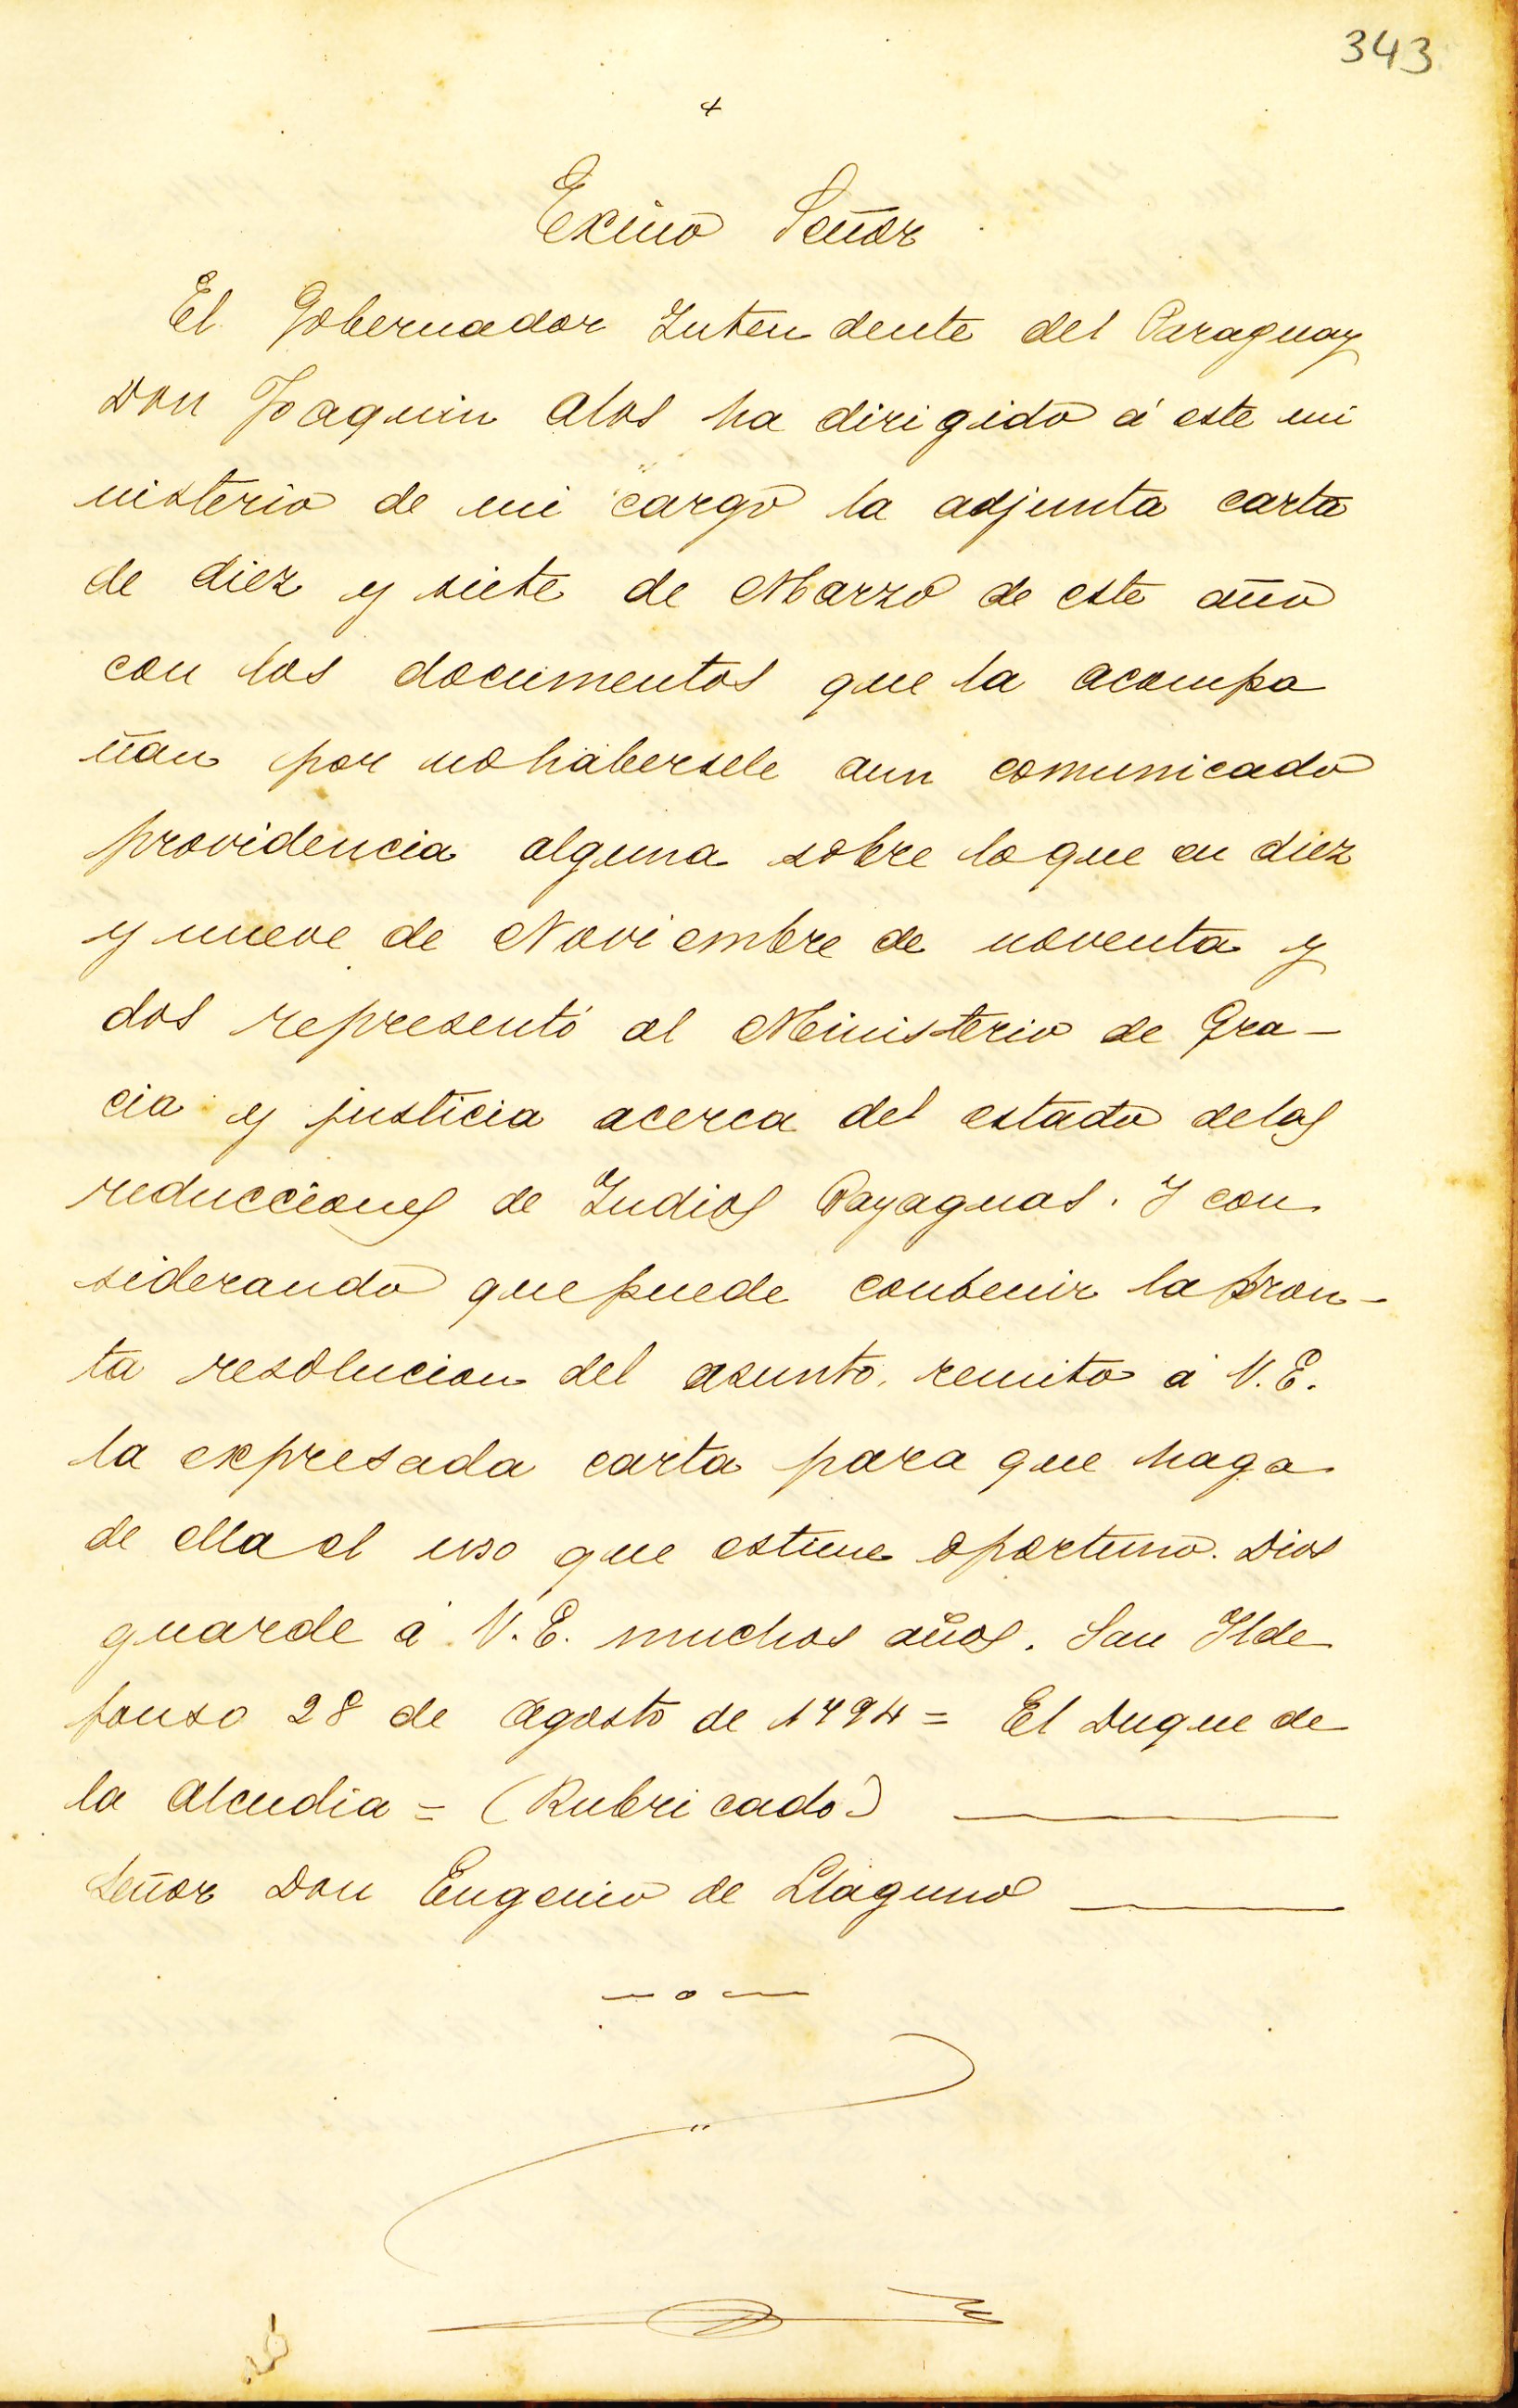 343
+
Exmo Señor
El Gobernador Intendente del Paraguay
Don Joaquin Alos ha dirigido á este mi
nisterio de mi cargo la adjunta carta
de diez y siete de Marzo de este año
con los documentos que la acompa
ñan por no habersele aun comunicado
providencia alguna sobre lo que en diez
y nueve de Noviembre de noventa y
dos representó al Ministerio de Gra-
cia y justicia acerca del estado delos
reducciones de Indios Payaguas. Y con
siderando que puede conbenir la pron-
ta resolucion del asunto, remito á V.E.
la expresada carta para que haga
de ella el uso que estime oportuno. Dios
guarde á V.E. muchos años. San Ilde
fonso 28 de Agosto de 1794 = El Duque de
la Alcudia = (Rubricado)
Señor Don Eugenio de Llaguno
—o—